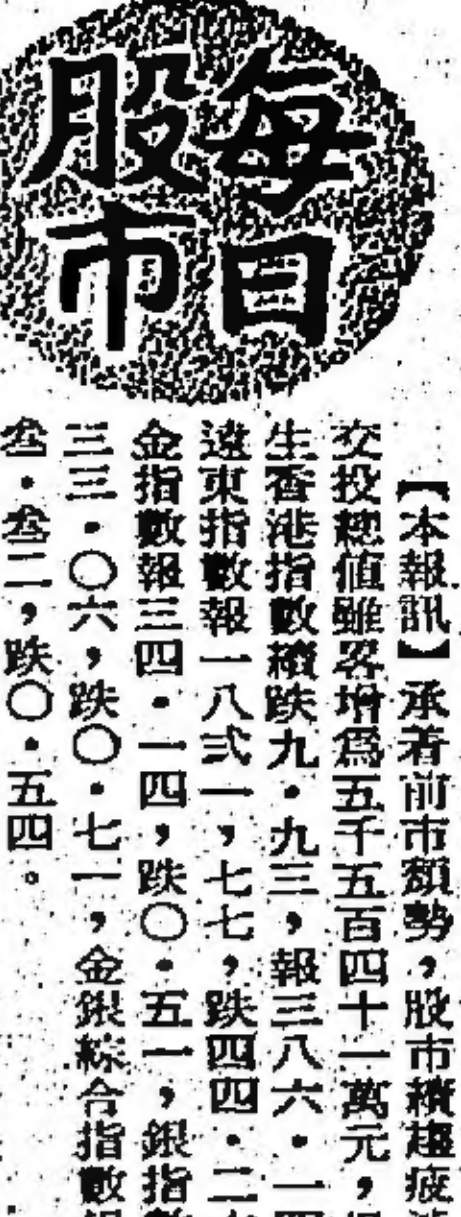 每日
股市
【本報訊】承着前市頹勢，股市續趨疲
交投總值雖畧增爲五千五百四十一萬元，
生香港指數續跌九·九三，報三八六·一四
遠東指數報一八弍一，七七，跌四四·二
金指數報三四·一四，跌〇·五一，銀指數
三三·〇六，跌〇·七一，金銀綜合指數
叁·叁二，跌〇·五四。